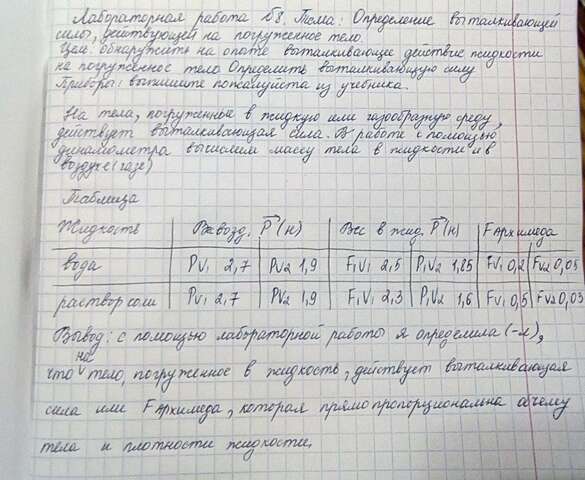 Лабораторная работа №8. Тема: Определение выталкивающей
силы, действующей на погруженное тело.
Цель: обнаружить на опыте выталкивающее действие жидкости
на погруженное тело. Определить выталкивающую силу
Приборы: выпишите пожалуйста из учебника.
На тела, погруженные в жидкую или газообразную среду,
действует выталкивающая сила. В работе с помощью
динамометра вычислим массу тела в жидкости и в
воздухе (газе)
Таблица
Жидкость Р воз д. P (н) Вес в жид. P (н) F Архимеда
вода PV1 2,7 PV2 1,9 F1V1 2,5 P1V2 1,85 FV1 0,2 FV2 0,05
раствор соли PV1 2,7 PV2 1,9 F1V1 2,3 P1V2 1,6 FV1 0,5 FV2 0,03
Вывод: с помощью лабораторной работы я определила (-л),
что на тело, погруженное в жидкость, действует выталкивающая
сила или F Архимеда, которая прямо пропорциональна объему
тела и плотности жидкости.